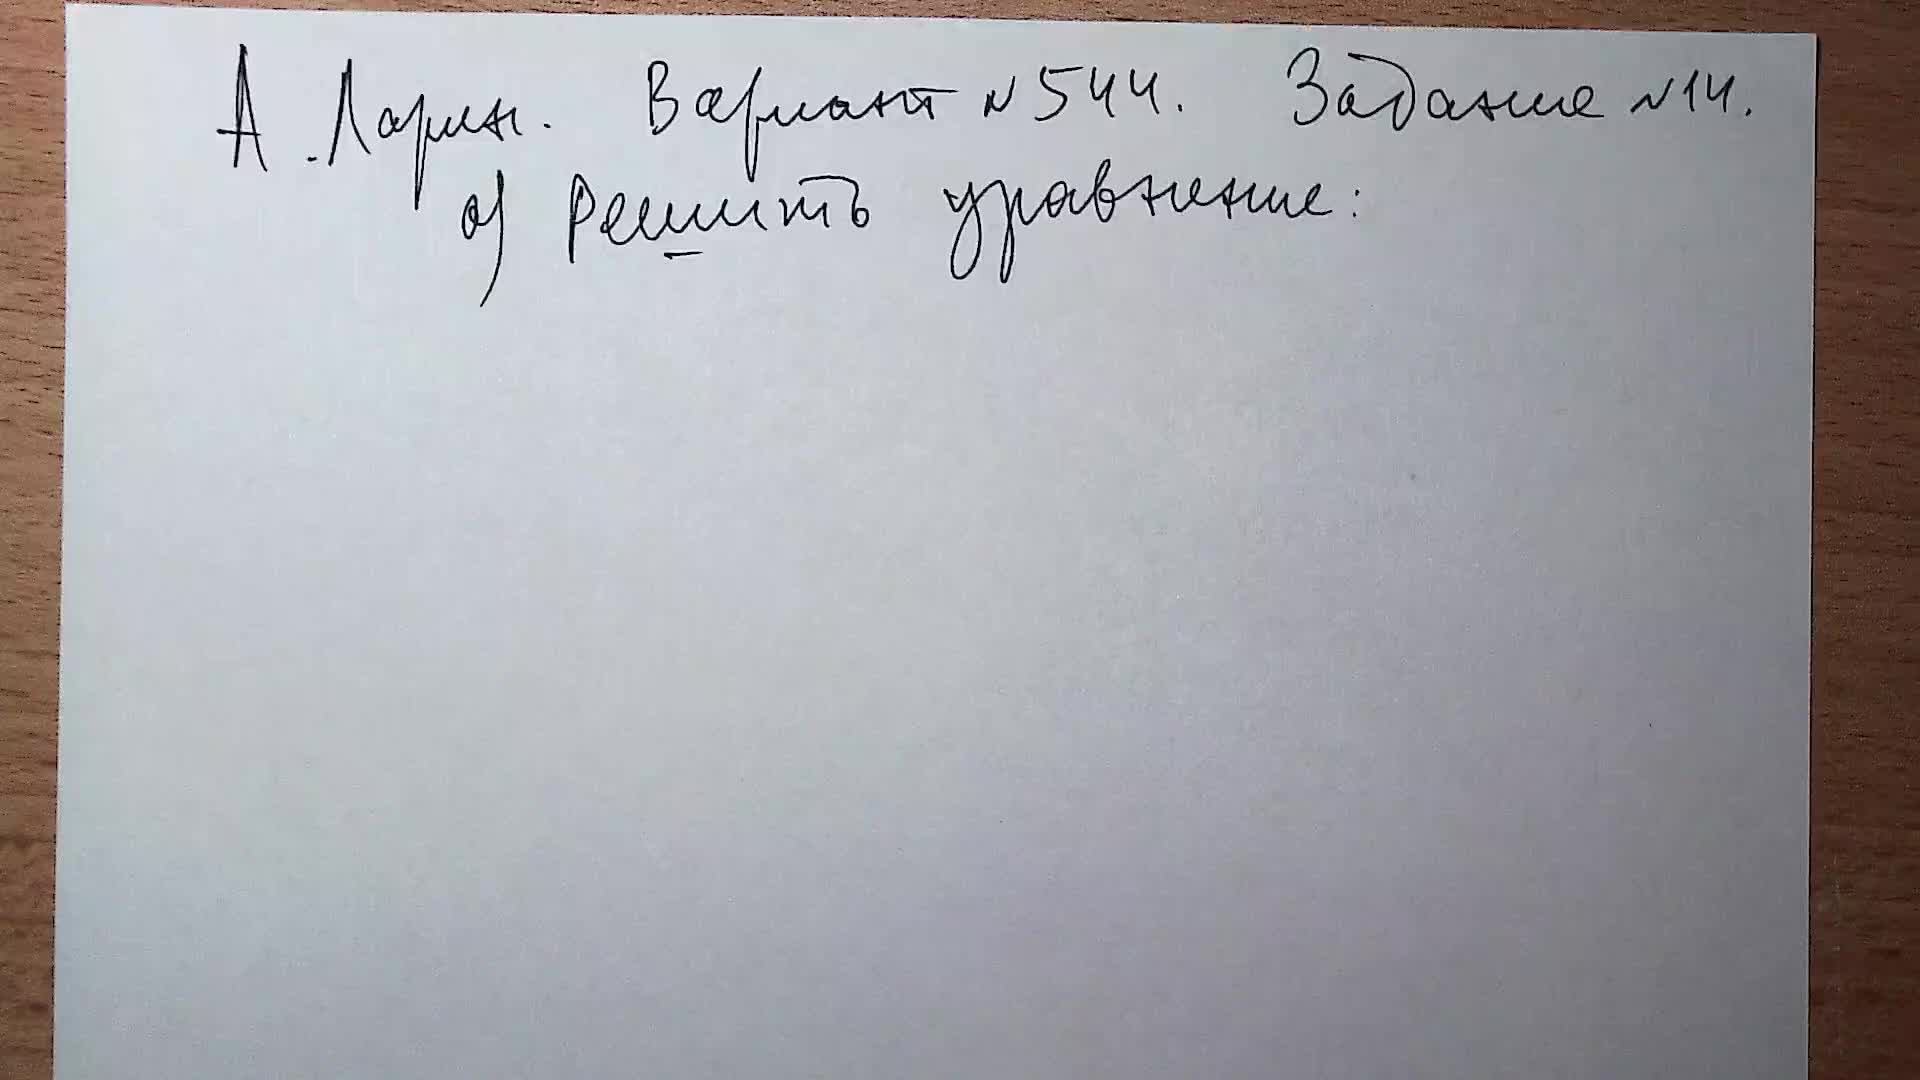 А. Ларин. Вариант №544. Задание №14.
а) Решить уравнение: